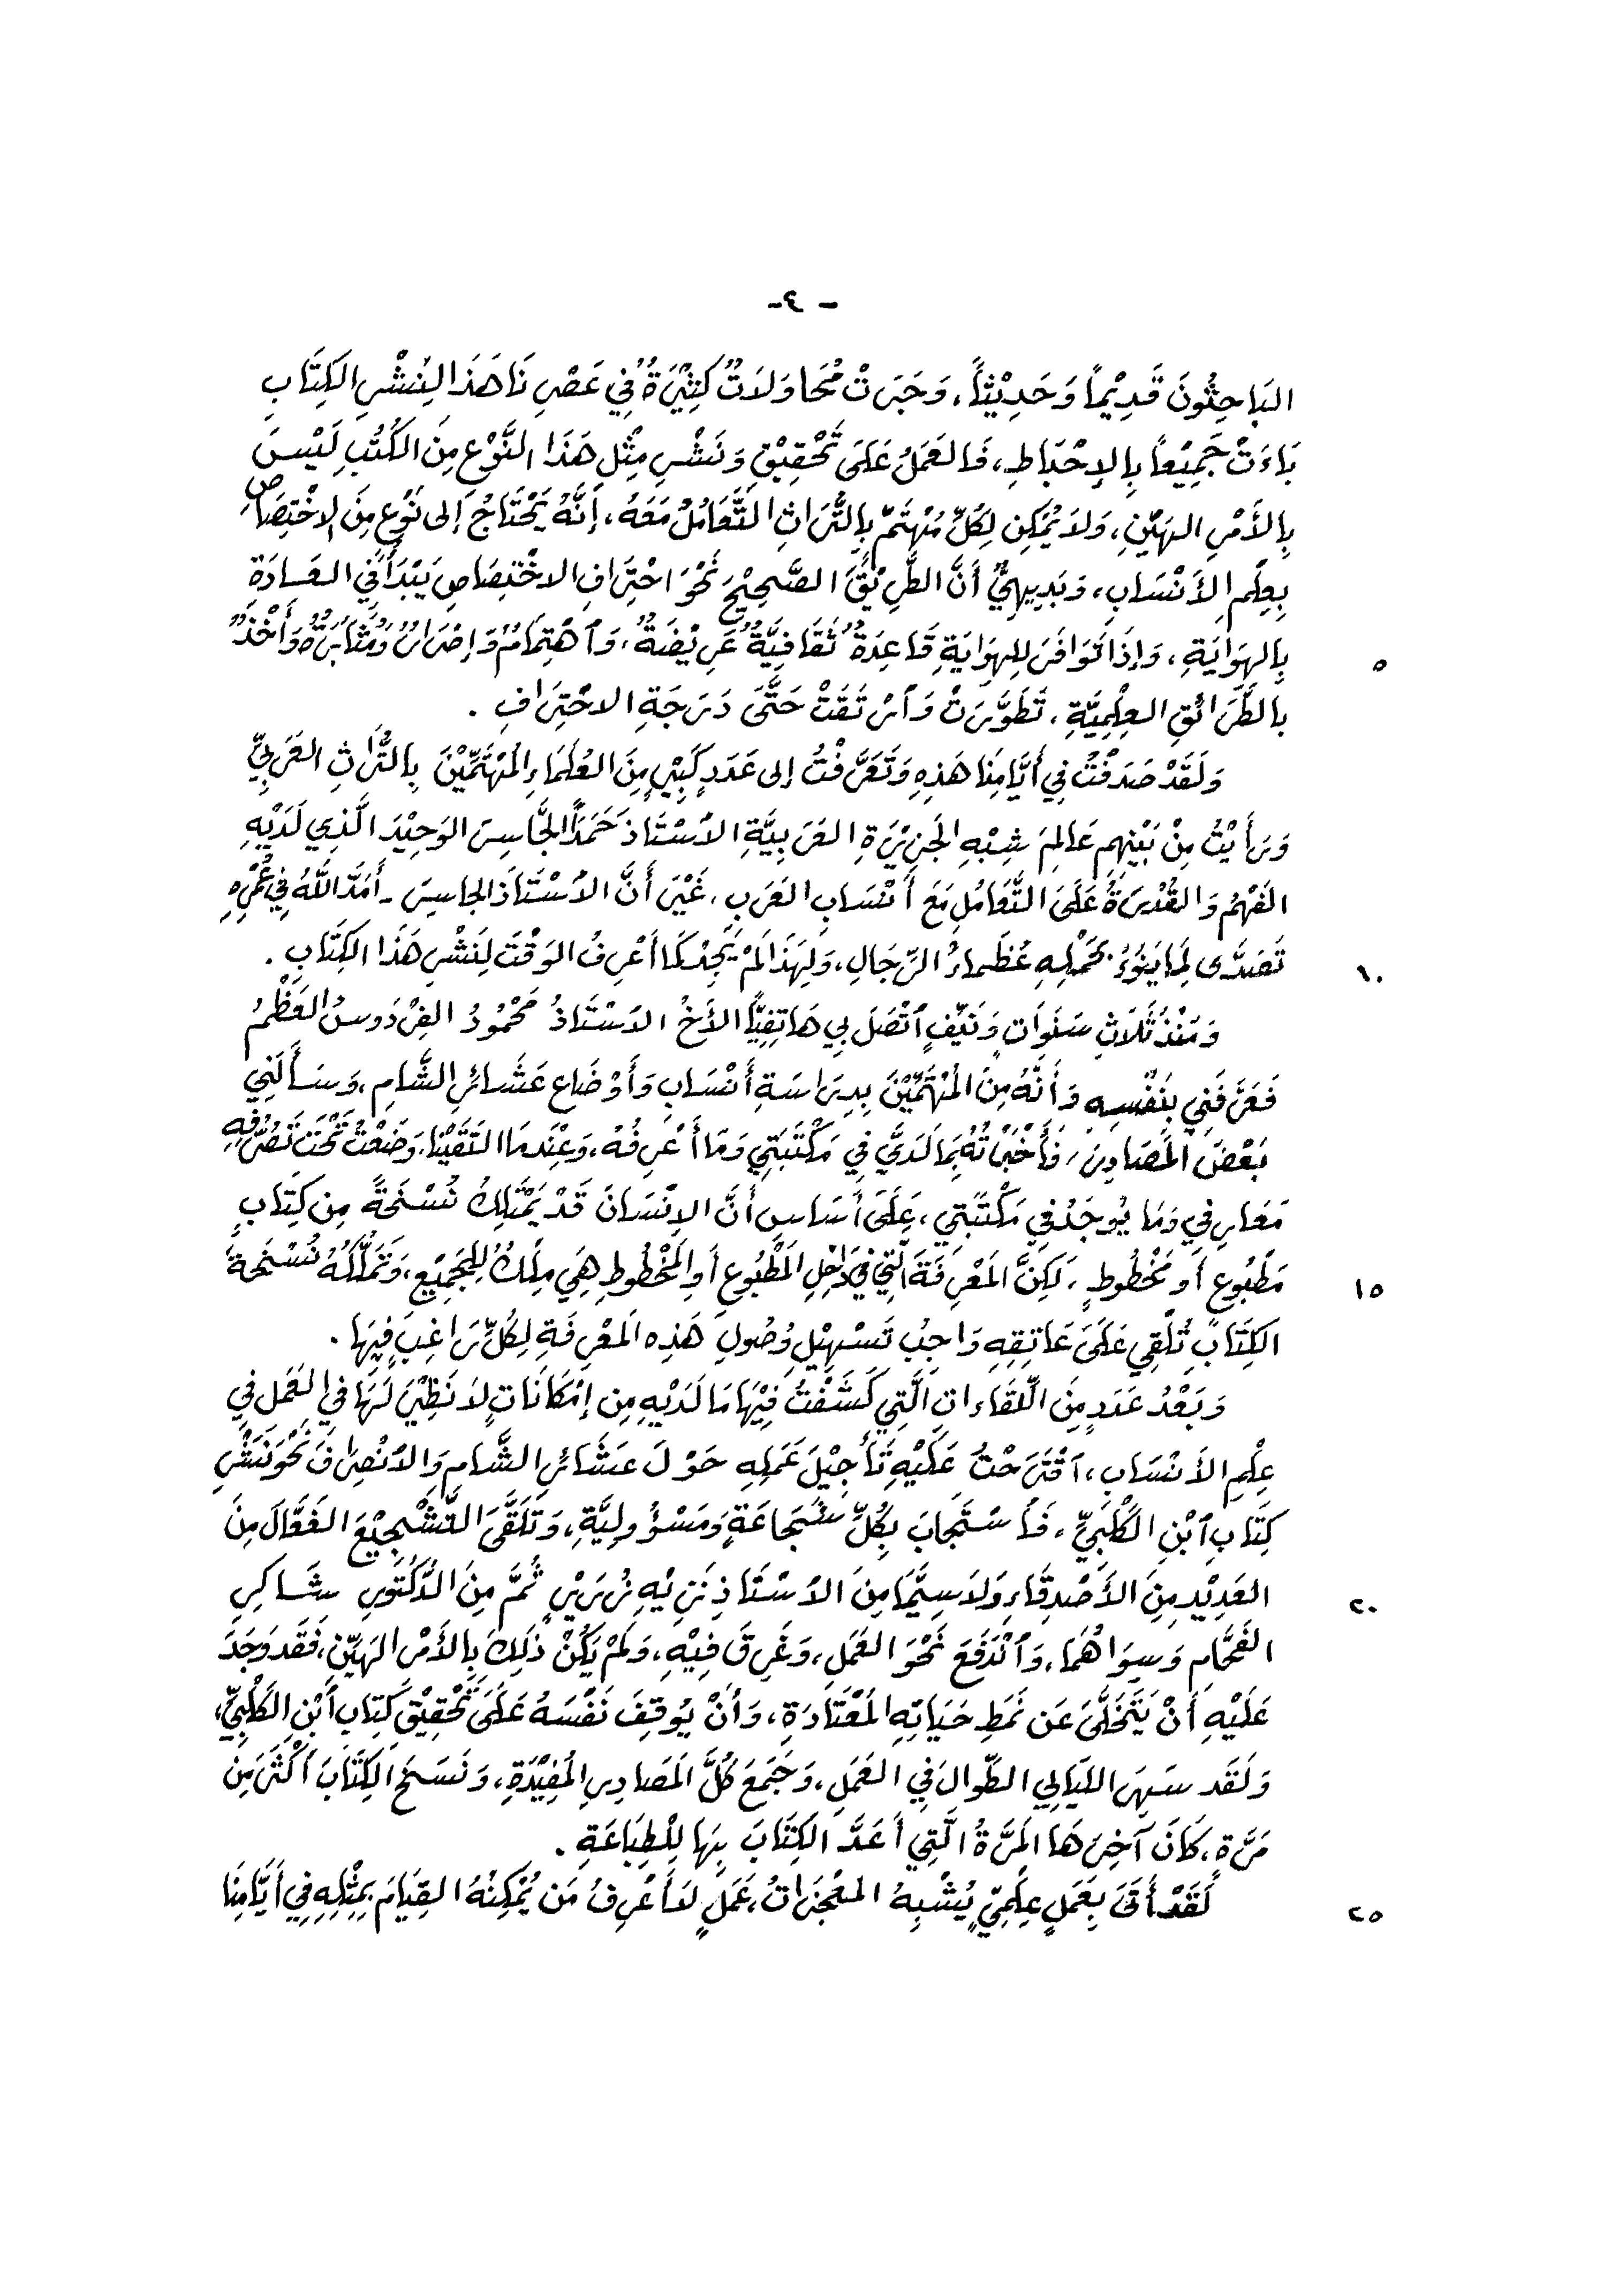 - ٤ -
البَاحِثُونَ قَدِيْماً وَحَدِيْثاً، وَجَرَتْ مُحَاوَلاَتٌ كَثِيْرَةٌ فِي عَصْرِنَا هَذَا لِنَشْرِ الكِتَابِ
بَاءَتْ جَمِيْعاً بِالإِحْبَاطِ، فَالعَمَلُ عَلَى تَحْقِيْقِ وَنَشْرِ مِثْلِ هَذَا النَّوْعِ مِنَ الكُتُبِ لَيْسَ
بِالأَمْرِ الهَيِّنِ، وَلاَ يُمْكِن لِكُلِّ مُهْتَمٍّ بِالتُّرَاثِ التَّعَامُلُ مَعَهُ، إِنَّهُ يَحْتَاجُ إِلى نَوْعٍ مِنَ الاخْتِصَاصِ
بِعِلْمِ الأَنْسَابِ، وَبَدِيهِيٌّ أَنَّ الطَّرِيْقَ الصَّحِيْحَ نَحْوَ احْتِرَافِ الاخْتِصَاصِ يَبْدَأُ فِي العَادَةِ
٥ بِالهِوَايَةِ، وَإِذَا تَوَافَرَ لِلهِوَايَةِ قَاعِدَةٌ ثَقَافِيَّةٌ عَرِيْضَةٌ، وَٱهْتِمَامٌ وَإِصْرَارٌ وَمُثَابَرَةٌ وَأَخْذٌ
بالطَّرَائِقِ العِلْمِيَّةِ، تَطَوَّرَتْ وَٱرْتَقَتْ حَتَّى دَرَجَةِ الاحْتِرَافِ .
وَلَقَدْ صَدَفْتُ فِي أَيَّامِنَا هَذِهِ وَتَعَرَّفْتُ إِلى عَدَدٍ كَبِيْرٍ مِنَ العُلَمَاءِ المُهْتَمِّيْنَ بِالتُّرَاثِ العَرَبِيِّ
وَرَأَيْتُ مِنْ بَيْنِهِم عَالِمَ شِبْهِ الجَزِيْرَةِ العَرَبِيَّةِ الأُسْتَاذَ حَمَدَاً الجَاسِرَ الوَحِيْدَ الَّذِي لَدَيْهِ
الفَهْمُ وَالقُدْرَةُ عَلَى التَّعَامُلِ مَعَ أَنْسَابِ العَرَبِ، غَيْرَ أَنَّ الأُسْتَاذَ الجاسِرَ - أَمَدَّ اللَّهُ فِي عُمْرِهِ
١٠ تَصَدَّى لِمَا يَنُوْءُ بحَمْلِهِ عُظَمَاءُ الرِّجَالِ، وَلِهَذَا لَمْ يَجِدْ كَمَا أَعْرِفُ الوَقْتَ لِنَشْرِ هَذَا الكِتَابِ .
وَمُنْذُ ثَلاَثِ سَنَوَاتٍ وَنَيِّفٍ ٱتَّصَلَ بِي هَاتِفِيًّا الأَخُ الأُسْتَاذُ مَحْمُودُ الفِرْدَوسُ العَظْمُ
فَعَرَّفَنِي بِنَفْسِهِ وَأَنَّهُ مِنَ المُهْتَمِّيْنَ بِدِرَاسَةِ أَنْسَابِ وَأَوْضَاعِ عَشَائِرِ الشَّامِ، وَسَأَلَنِي
بَعْضَ المَصَادِرِ، فَأَخْبَرْتُهُ بِمَا لَدَيَّ فِي مَكْتَبَتِي وَمَا أَعْرِفُهُ، وَعِنْدَمَا التَقَيْنَا، وَضَعْتُ تَحْتَ تَصَرُّفِهِ
مَعَارِفِي وَمَا يُوجَدُ فِي مَكْتَبَتِي، عَلَى أَسَاسِ أَنَّ الإِنْسَانَ قَدْ يَمْتَلِكُ نُسْخَةً مِن كِتَابٍ
١٥ مَطْبُوعٍ أَو مَخْطُوطٍ، لَكِنَّ المَعْرِفَةَ الَّتِي فِي دَاخِلِ المَطْبُوعِ أَوِ المَخْطُوطِ هِيَ مِلْكٌ لِلجَمِيْعِ، وَتَمَلُّكُهُ نُسْخَةً
الكِتَابِ تُلْقِي عَلَى عَاتِقِهِ وَاجِبَ تَسْهِيْلِ وُصُولِ هَذِهِ المَعْرِفَةِ لِكُلِّ رَاغِبٍ فِيهَا .
وَبَعْدُ عَدَدٍ مِنَ اللِّقَاءَاتِ الَّتِي كَشَفْتُ فِيْهَا مَا لَدَيْهِ مِن إِمْكَانَاتٍ لاَ نَظِيْرَ لَهَا فِي العَمَلِ فِي
عِلْمِ الأَنْسَابِ، ٱقْتَرَحْتُ عَلَيْهِ تَأْجِيْلَ عَمَلِهِ حَوْلَ عَشَائِرِ الشَّامِ وَالٱنْصِرَافَ نَحْوَ نَشْرِ
كِتَابِ ٱبْنِ الكَلْبِيِّ، فَٱسْتَجَابَ بِكُلِّ شَجَاعَةٍ وَمَسْؤُولِيَّةٍ، وَتَلَقَّى التَّشْجِيْعَ الفَعَّالَ مِنَ
٢٠ العَدِيْدِ مِنَ الأَصْدِقَاءِ وَلاَ سِيَّمَا مِنَ الأُسْتَاذِ نَزِيْهِ زُرْزَرٍ ثُمَّ مِنَ الدُّكْتُورِ شَاكِرٍ
الفَحَّامِ وَسِوَاهُمَا، وَٱنْدَفَعَ نَحْوَ العَمَلِ، وَغَرِقَ فِيْهِ، وَلَمْ يَكُنْ ذَلِكَ بِالأَمْرِ الهَيِّنِ، فَقَد وَجَدَ
عَلَيْهِ أَنْ يَتَخَلَّى عَن نَمَطِ حَيَاتِهِ المُعْتَادَةِ، وَأَنْ يُوقِفَ نَفْسَهُ عَلَى تَحْقِيْقِ كِتَابِ ٱبْنِ الكَلْبِيِّ،
وَلَقَد سَهِرَ اللَّيَالِي الطِّوالَ فِي العَمَلِ، وَجَمَعَ كُلَّ المَصَادِرِ المُفِيْدَةِ، وَنَسَخَ الكِتَابَ أَكْثَرَ مِن
مَرَّةٍ، كَانَ آخِرَهَا المَرَّةُ الَّتِي أَعَدَّ الكِتَابَ بِهَا لِلْطِبَاعَةِ .
٢٥ لَقَدْ أَتَى بِعَمَلٍ عِلْمِيٍّ يُشْبِهُ المُعْجِزَاتِ، عَمَلٍ لاَ أَعْرِفُ مَن يُمْكِنُهُ القِيَامَ بِمِثْلِهِ فِي أَيَّامِنَا